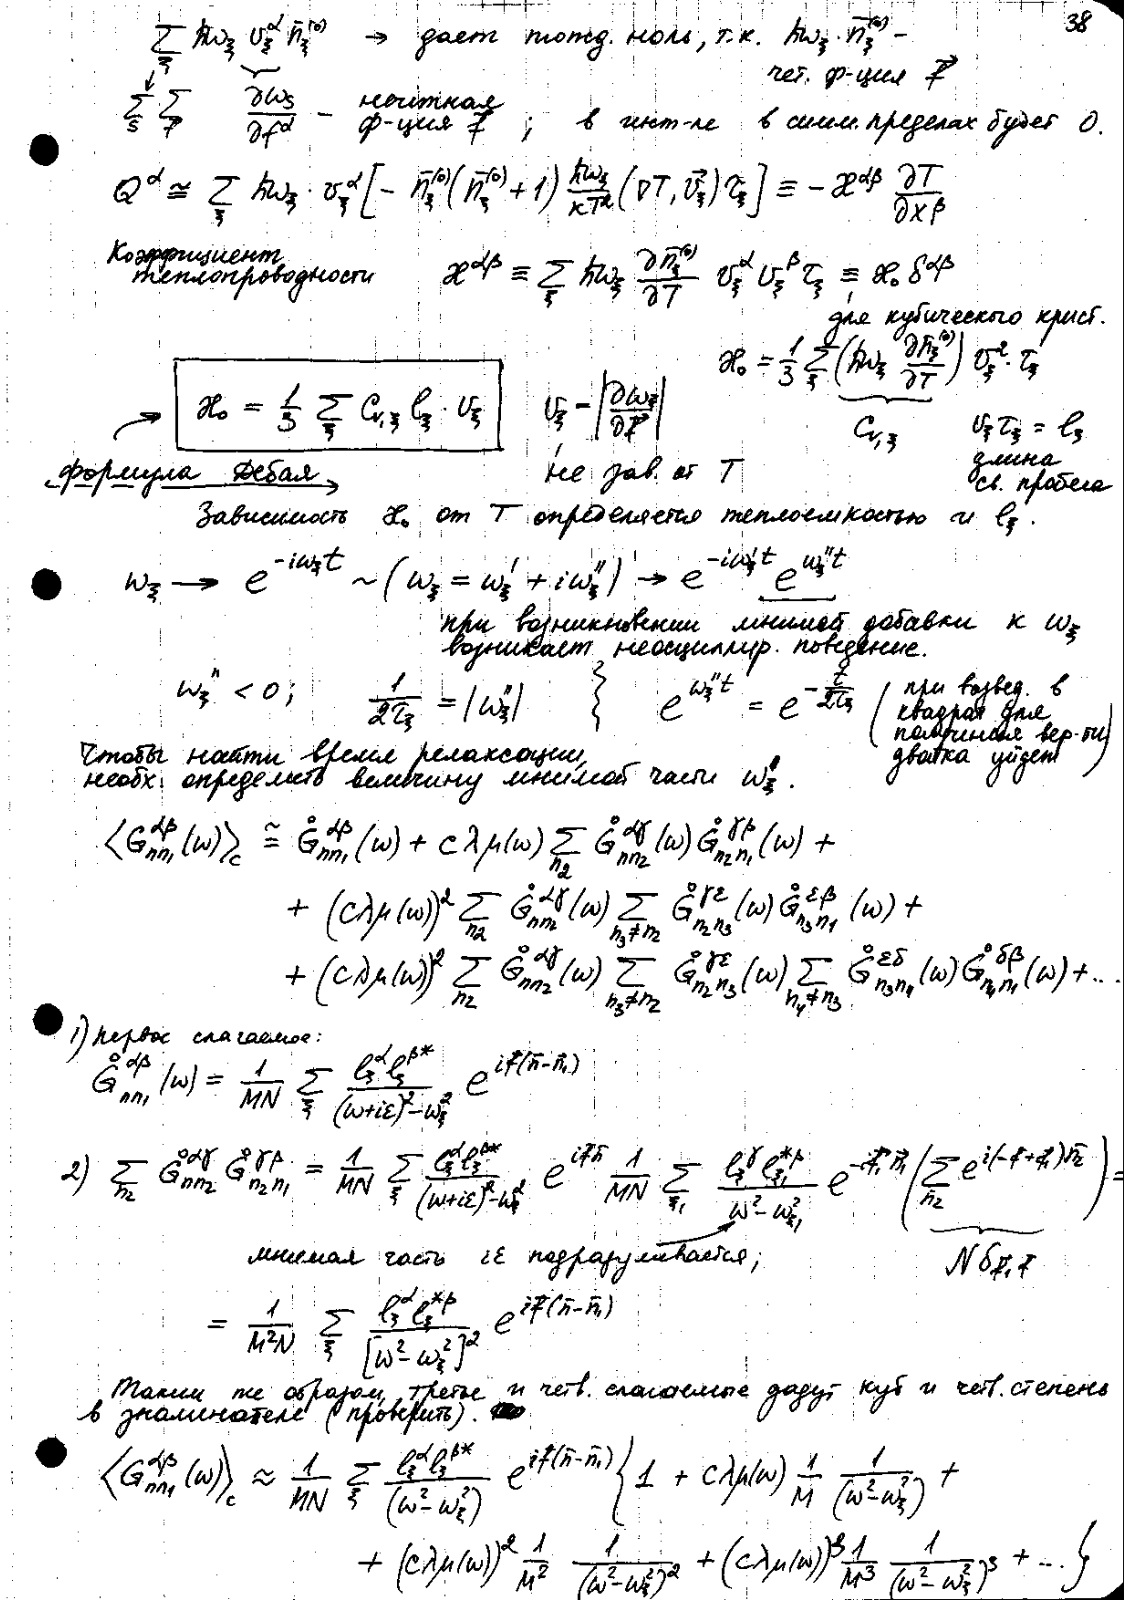 38
∑_ξ ħω_ξ v_ξ^α n̄_ξ^(0) → дает тожд. ноль, т.к. ħω_ξ · n̄_ξ^(0) –
чет. ф-ция f⃗
∑_s ∑_f ∂ω_s/∂f^α – нечетная ф-ция f⃗ ; в инт-ле в симм. пределах будет 0.
Q^α ≅ ∑_ξ ħω_ξ · v_ξ^α [ – n̄_ξ^(0) (n̄_ξ^(0) + 1) ħω_ξ/kT² (∇T, v⃗_ξ) τ_ξ ] ≡ – ϰ^αβ ∂T/∂x^β
Коэффициент теплопроводности ϰ^αβ ≡ ∑_ξ ħω_ξ ∂n̄_ξ^(0)/∂T v_ξ^α v_ξ^β τ_ξ ≡ ϰ₀ δ^αβ
для кубического крист.
ϰ₀ = 1/3 ∑_ξ (ħω_ξ ∂n̄_ξ^(0)/∂T) v_ξ² · τ_ξ
ϰ₀ = 1/3 ∑_ξ C_v,ξ l_ξ · v_ξ v_ξ – |∂ω_ξ/∂f⃗| C_v,ξ v_ξ τ_ξ = l_ξ
формула Дебая не зав. от T длина св. пробега
Зависимость ϰ₀ от T определяется теплоемкостью и l_ξ.
ω_ξ → e^(-iω_ξ t) ~ (ω_ξ = ω_ξ' + iω_ξ'') → e^(-iω_ξ' t) e^(ω_ξ'' t)
при возникновении мнимой добавки к ω_ξ
возникает неосциллир. поведение.
ω_ξ'' < 0 ; 1/(2τ_ξ) = |ω_ξ''| } e^(ω_ξ'' t) = e^(-t/(2τ_ξ)) (при возвед. в квадрат для получения вер-ти двойка уйдет)
Чтобы найти время релаксации,
необх. определить величину мнимой части ω_ξ''.
⟨G_nn₁^αβ(ω)⟩_c ≅ G̊_nn₁^αβ(ω) + cλμ(ω) ∑_n₂ G̊_nn₂^αγ(ω) G̊_n₂n₁^γβ(ω) +
+ (cλμ(ω))² ∑_n₂ G̊_nn₂^αγ(ω) ∑_n₃≠n₂ G̊_n₂n₃^γε(ω) G̊_n₃n₁^εβ(ω) +
+ (cλμ(ω))² ∑_n₂ G̊_nn₂^αγ(ω) ∑_n₃≠n₂ G̊_n₂n₃^γε(ω) ∑_n₄≠n₃ G̊_n₃n₄^εδ(ω) G̊_n₄n₁^δβ(ω) + ...
1) первое слагаемое:
G̊_nn₁^αβ(ω) = 1/MN ∑_ξ l_ξ^α l_ξ^β* / ((ω+iε)² – ω_ξ²) e^(if⃗(n̄–n̄₁))
2) ∑_n₂ G̊_nn₂^αγ G̊_n₂n₁^γβ = 1/MN ∑_ξ l_ξ^α l_ξ^β* / ((ω+iε)² – ω_ξ²) e^(if⃗n̄) 1/MN ∑_ξ₁ l_ξ^γ l_ξ₁^*β / (ω² – ω_ξ₁²) e^(-if⃗₁n̄₁) (∑_n̄₂ e^(i(–f+f₁)n̄₂)) =
мнимая часть iε подразумевается; N δ_f₁f
= 1/M²N ∑_ξ l_ξ^α l_ξ^*β / [ω² – ω_ξ²]² e^(if⃗(n̄–n̄₁))
Таким же образом, третье и четв. слагаемые дадут куб и четв. степень
в знаменателе (проверить).
⟨G_nn₁^αβ(ω)⟩_c ≈ 1/MN ∑_ξ l_ξ^α l_ξ^β* / (ω² – ω_ξ²) e^(if⃗(n̄–n̄₁)) { 1 + cλμ(ω) 1/M 1/(ω² – ω_ξ²) +
+ (cλμ(ω))² 1/M² 1/(ω² – ω_ξ²)² + (cλμ(ω))³ 1/M³ 1/(ω² – ω_ξ²)³ + ... }